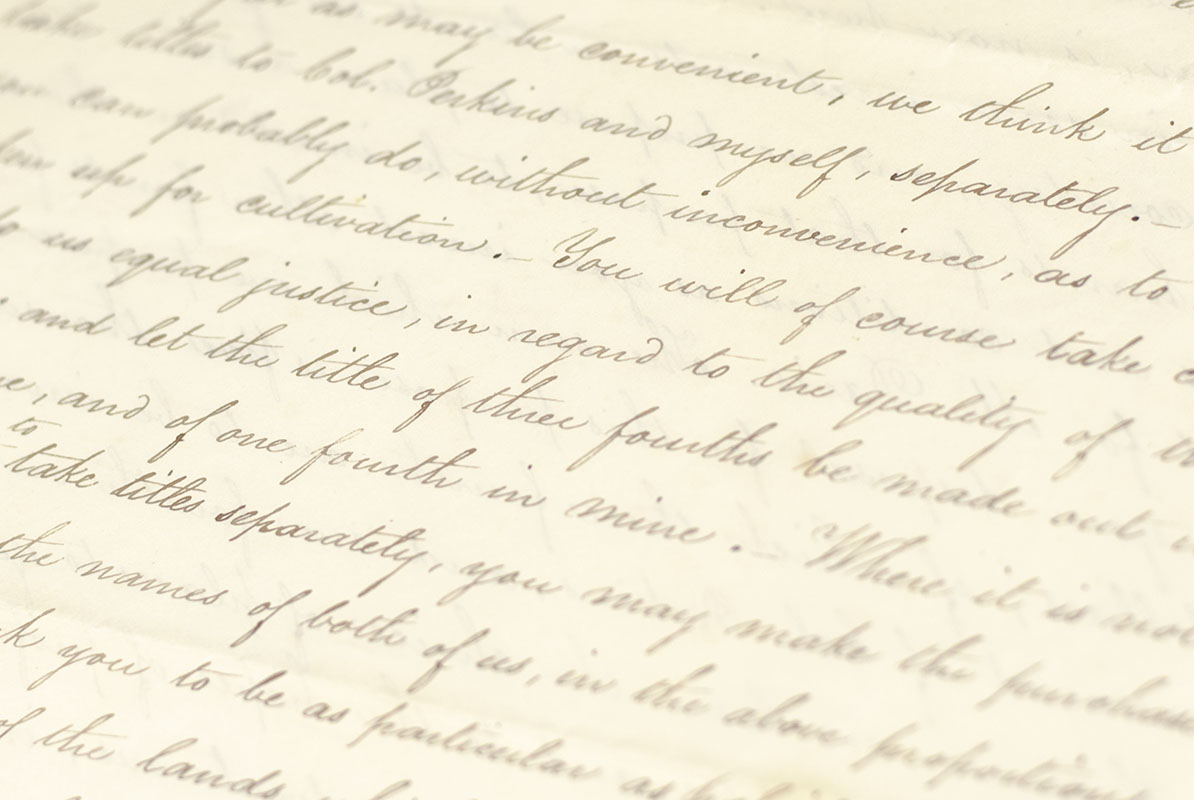 as may be convenient, we think it
take titles to Col. Perkins and myself, separately. –
can probably do, without inconvenience, as to
up for cultivation. – You will of course take
us equal justice, in regard to the quality of
and let the title of three fourths be made out
, and of one fourth in mine. – Where it is
to
take titles separately, you may make the
the names of both of us, in the above proportions
you to be as particular as
of the lands